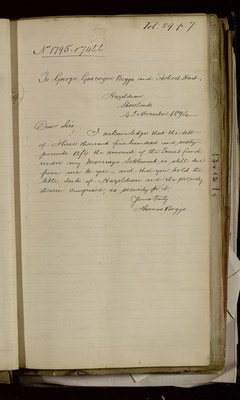 Vol. 59 p. 7
No 1795. 1746
To George Gascoigne Boggs and Robert Hart
Hazeldean
4th November 1896
Dear Sirs
I acknowledge that the debt
of Three thousand five hundred and sixty
pounds 12/6 the amount of the Trust fund
under my Marriage Settlement is still due
from me to you and that you hold the
title deeds of Hazeldean and the property
therein comprised as security for it.
Yours truly
Thomas Boggs